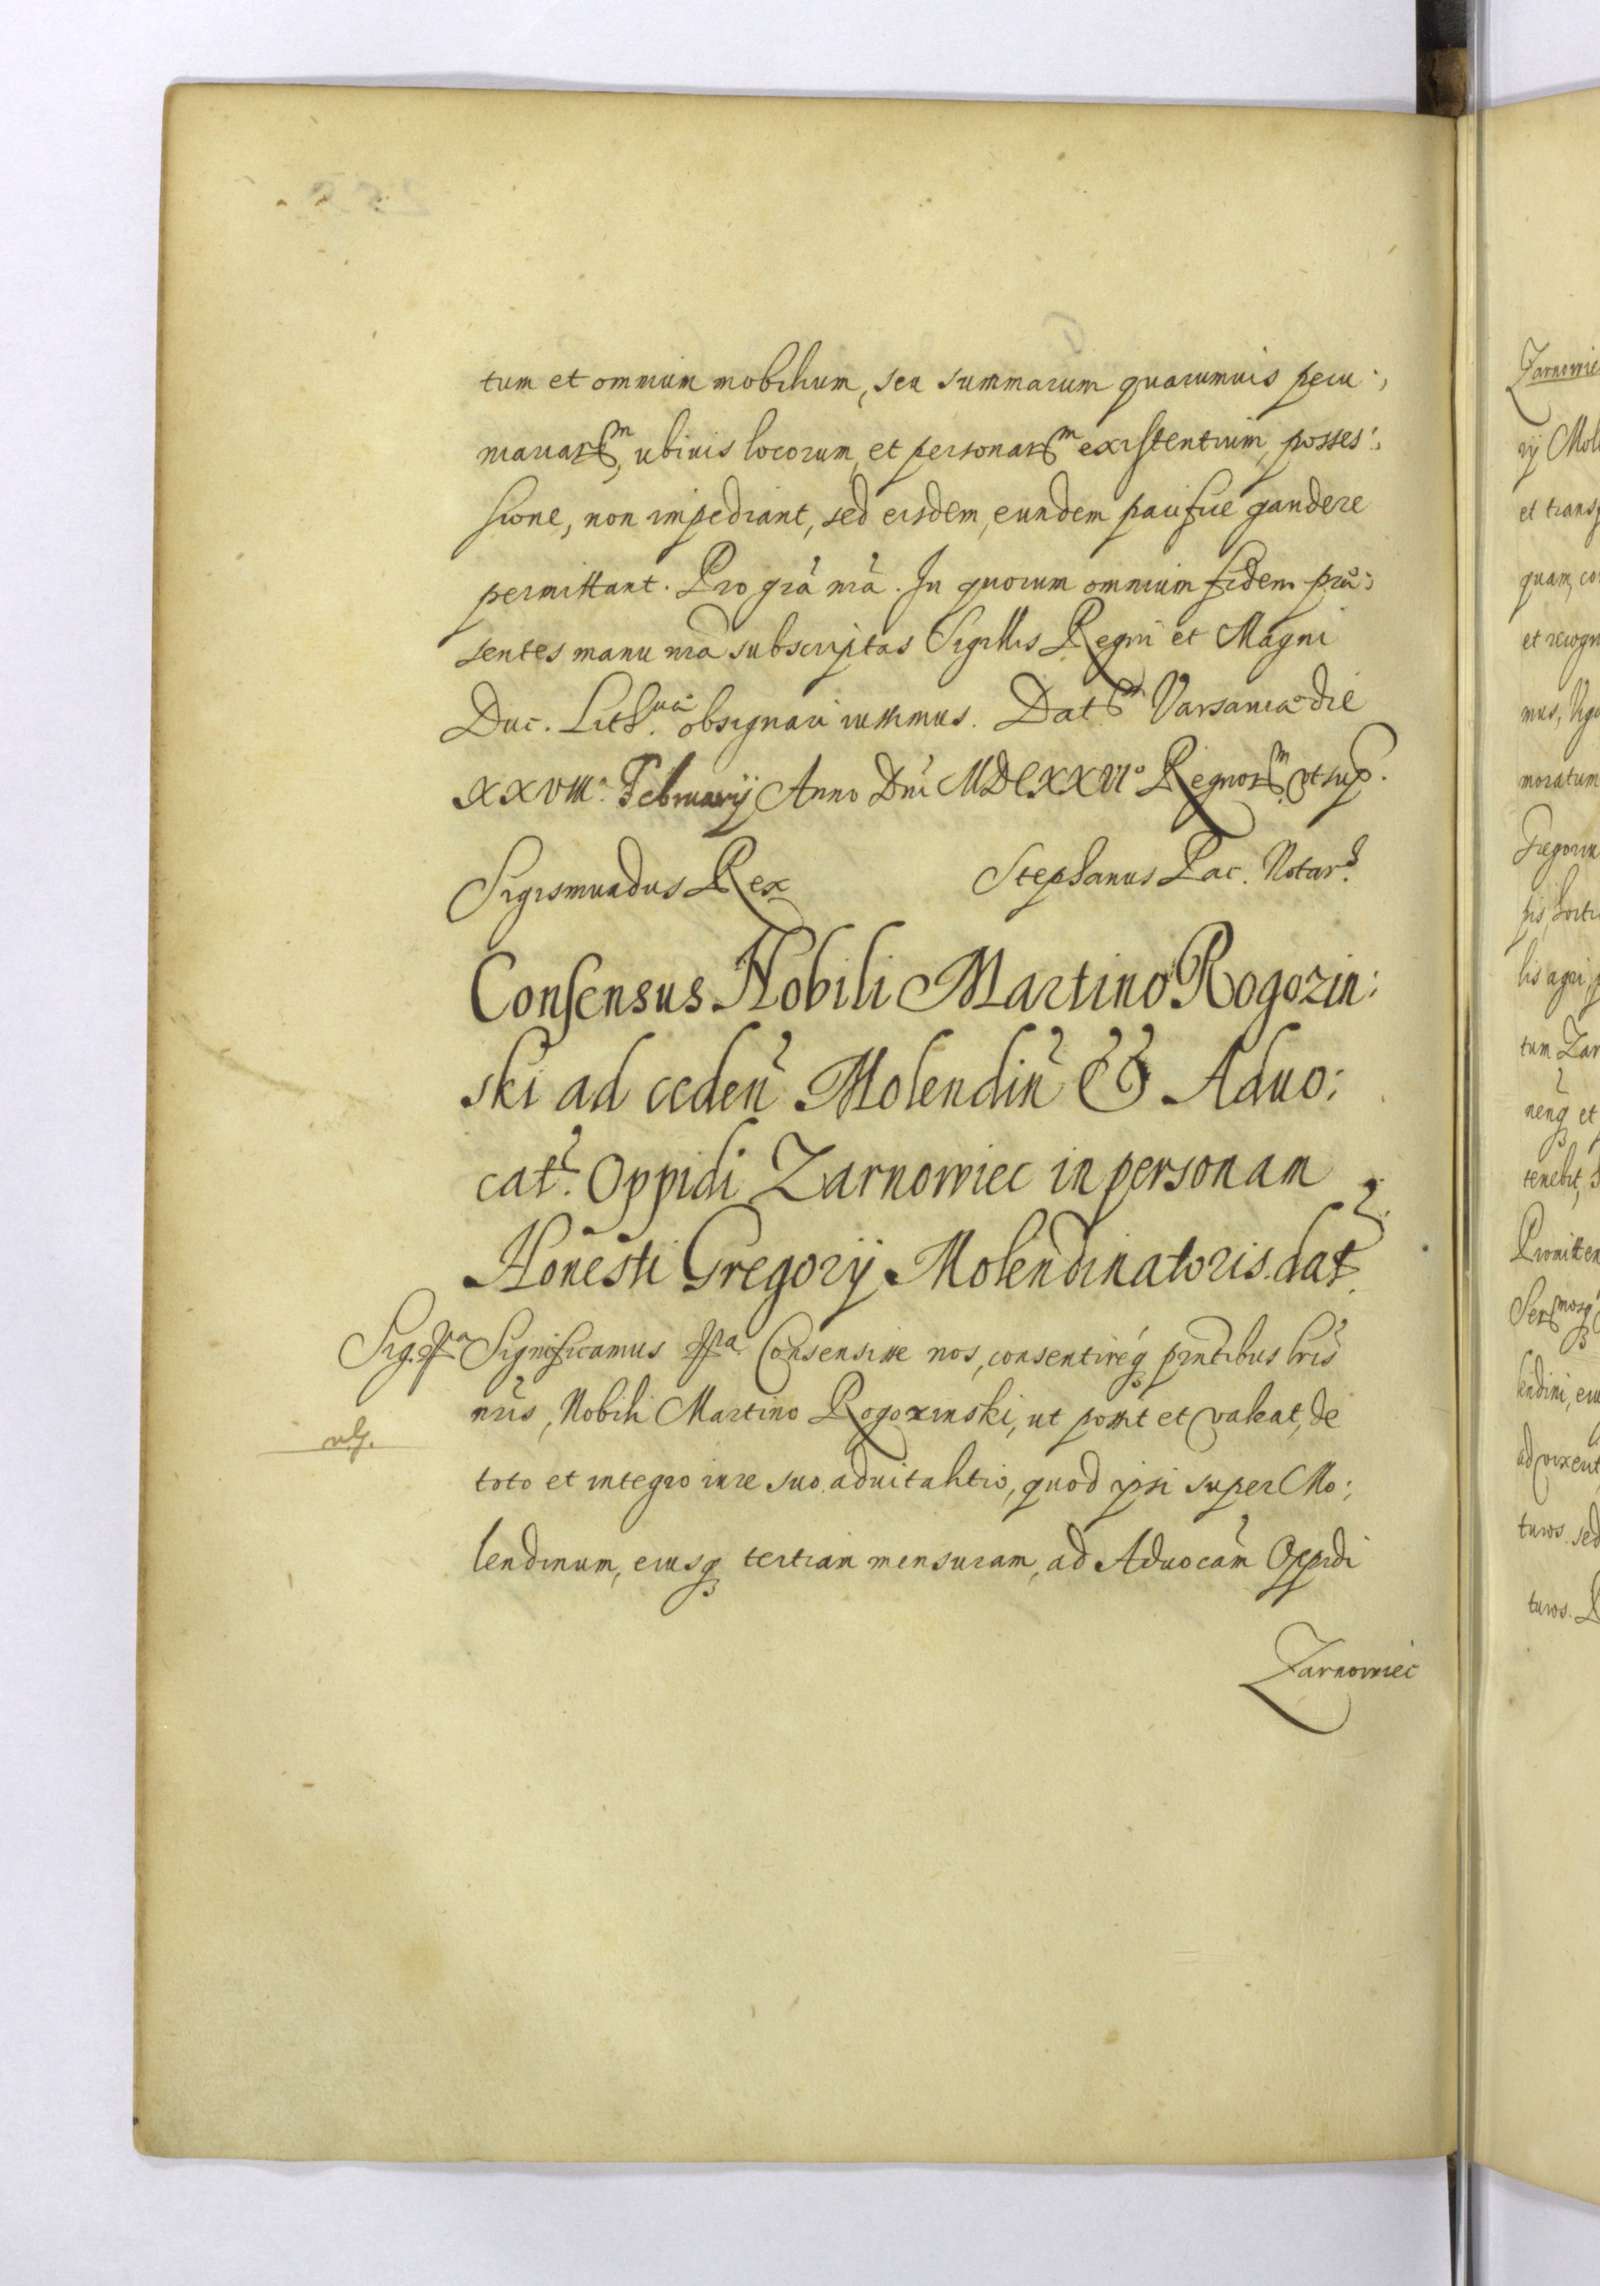 tum et omnium mobilium, seu summarum quarumuis pecu:
niariarum, ubiuis locorum, et personarum existentium, posses:
sione, non impediant, sed eisdem, eundem pacifice gaudere
permittant. Pro gra nra. In quorum omnium fidem præ:
sentes manu nra subscriptas Sigillis Regni et Magni
Duc. Lith.uæ obsignari iussimus. Datum Varsauiæ die
XXVIIIa. February Anno Dni MDCXXVIo Regnorum. vt sup.
Sigismundus Rex
Stephanus Pac. Notar9.
Consensus Nobili Martino Rogozin:
ski ad ceden Molendin & Aduo:
cat. Oppidi Zarnowiec in personam
Honesti Gregorij Molendinatoris. dat.
Sig. Significamus Consensisse nos, consentireq pntibus lris
nris, Nobili Martino Rogozinski, ut possit et valeat, de
toto et integro iure suo aduitalitio, quod ipsi super Mo:
lendinum, eiusq tertiam mensuram, ad Aduocam Oppidi
Zarnowiec
Zarnowie
rij Mol
et transf
quam, co
et recogn
mus, Vigo
moratum
Gregoriu
lis agri, p
tum Zar
neng et
tenebit, S
Promitten
lendini, eiu
ad vixerit
turos. sed
turos. P